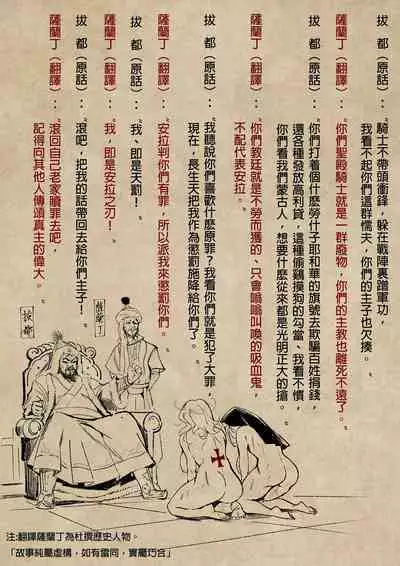 拔 都（原話）：騎士不帶頭衝鋒，躲在戰陣裏蹭軍功，
我看不起你們這群懦夫，你們的主子也欠揍。
薩蘭丁（翻譯）：你們聖殿騎士就是一群廢物，你們的主教也離死不遠了。
拔 都（原話）：你們打着個什麼勞什子耶和華的旗號去欺騙百姓捐錢，
還各種發放高利貸，這種偷雞摸狗的勾當，我看不慣，
你們看我們蒙古人，想要什麼從來都是光明正大的搶。
薩蘭丁（翻譯）：你們教廷就是不勞而獲的、只會嗡嗡叫喚的吸血鬼，
不配代表安拉。
拔 都（原話）：我聽說你們喜歡什麼原罪？我看你們就是犯了大罪，
現在，長生天把我作為懲罰施降給你們了。
薩蘭丁（翻譯）：安拉判你們有罪，所以派我來懲罰你們。
拔 都（原話）：我、即是天罰！
薩蘭丁（翻譯）：我，即是安拉之刃！
拔 都（原話）：滾吧，把我的話帶回去給你們主子！
薩蘭丁（翻譯）：滾回自己老家贖罪去吧，
記得向其他人傳頌真主的偉大。
薩蘭丁
拔都
注:翻譯薩蘭丁為杜撰歷史人物。
「故事純屬虛構，如有雷同，實屬巧合」